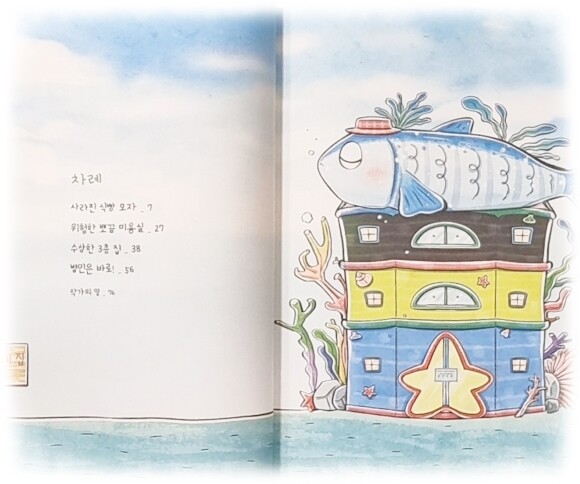 차례
사라진 식빵 모자 _ 7
위험한 뽀끔 미용실 _ 27
수상한 3층 집 _ 38
범인은 바로! _ 56
작가의 말 _ 76